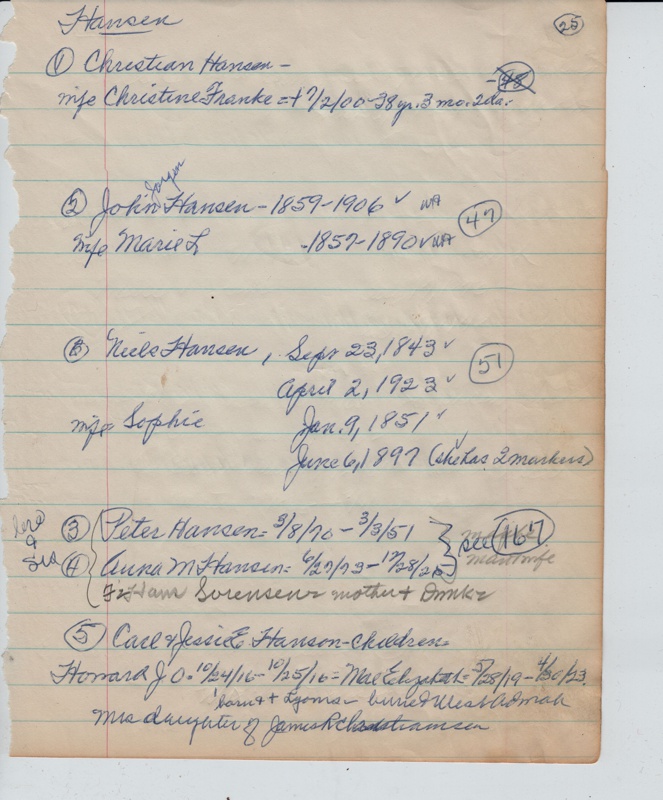 Hansen
25
① Christian Hansen -
-48
wife Christine Franke = + 7/2/00 - 38 yr. 3 mo. 2 da.
Jorgen
② John Hansen - 1859-1906 ✓ WA
47
wife Marie L - 1857-1890 ✓ WA
Niels Hansen, Sept 23, 1843 ✓
51
April 2, 1923 ✓
wife Sophie Jan. 9, 1851 ✓
June 6, 1897 (she has 2 markers)
bro & Sis
③ Peter Hansen = 3/8/70 - 3/3/51
see 167
④ Anna M Hansen = 6/27/73 - 12/28/25
Hans Sorensen mother &
⑤ Carl & Jessie E Hanson - children =
Howard J O. 10/24/16 - 10/25/16 = Mae Elizabeth = 5/28/19 - 4/30/23.
born + Lyons - buried West Admah
Mrs daughter of James R Christiansen